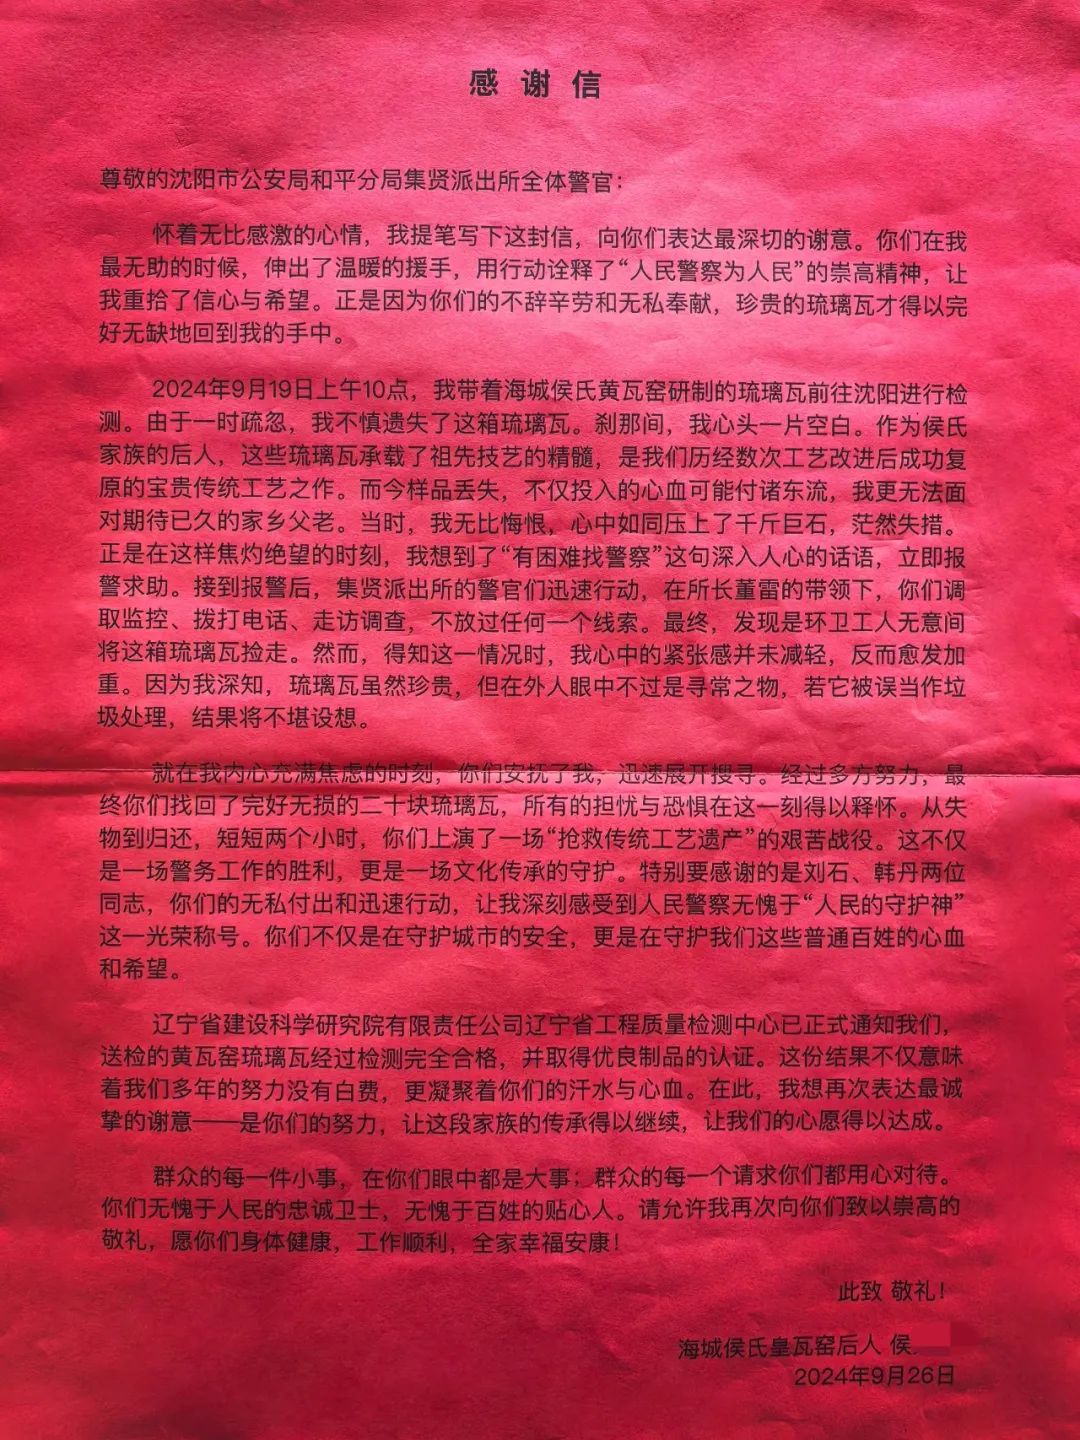 感谢信
尊敬的沈阳市公安局和平分局集贤派出所全体警官：
怀着无比感激的心情，我提笔写下这封信，向你们表达最深切的谢意。你们在我
最无助的时候，伸出了温暖的援手，用行动诠释了“人民警察为人民”的崇高精神，让
我重拾了信心与希望。正是因为你们的不辞辛劳和无私奉献，珍贵的琉璃瓦才得以完
好无缺地回到我的手中。
2024年9月19日上午10点，我带着海城侯氏黄瓦窑研制的琉璃瓦前往沈阳进行检
测。由于一时疏忽，我不慎遗失了这箱琉璃瓦。刹那间，我心头一片空白。作为侯氏
家族的后人，这些琉璃瓦承载了祖先技艺的精髓，是我们历经数次工艺改进后成功复
原的宝贵传统工艺之作。而今样品丢失，不仅投入的心血可能付诸东流，我更无法面
对期待已久的家乡父老。当时，我无比悔恨，心中如同压上了千斤巨石，茫然失措。
正是在这样焦灼绝望的时刻，我想到了“有困难找警察”这句深入人心的话语，立即报
警求助。接到报警后，集贤派出所的警官们迅速行动，在所长董雷的带领下，你们调
取监控、拨打电话、走访调查，不放过任何一个线索。最终，发现是环卫工人无意间
将这箱琉璃瓦捡走。然而，得知这一情况时，我心中的紧张感并未减轻，反而愈发加
重。因为我深知，琉璃瓦虽然珍贵，但在外人眼中不过是寻常之物，若它被误当作垃
圾处理，结果将不堪设想。
就在我内心充满焦虑的时刻，你们安抚了我，迅速展开搜寻。经过多方努力，最
终你们找回了完好无损的二十块琉璃瓦，所有的担忧与恐惧在这一刻得以释怀。从失
物到归还，短短两个小时，你们上演了一场“抢救传统工艺遗产”的艰苦战役。这不仅
是一场警务工作的胜利，更是一场文化传承的守护。特别要感谢的是刘石、韩丹两位
同志，你们的无私付出和迅速行动，让我深刻感受到人民警察无愧于“人民的守护神”
这一光荣称号。你们不仅是在守护城市的安全，更是在守护我们这些普通百姓的心血
和希望。
辽宁省建设科学研究院有限责任公司辽宁省工程质量检测中心已正式通知我们，
送检的黄瓦窑琉璃瓦经过检测完全合格，并取得优良制品的认证。这份结果不仅意味
着我们多年的努力没有白费，更凝聚着你们的汗水与心血。在此，我想再次表达最诚
挚的谢意——是你们的努力，让这段家族的传承得以继续，让我们的心愿得以达成。
群众的每一件小事，在你们眼中都是大事；群众的每一个请求你们都用心对待。
你们无愧于人民的忠诚卫士，无愧于百姓的贴心人。请允许我再次向你们致以崇高的
敬礼，愿你们身体健康，工作顺利，全家幸福安康！
此致 敬礼！
海城侯氏皇瓦窑后人 侯
2024年9月26日